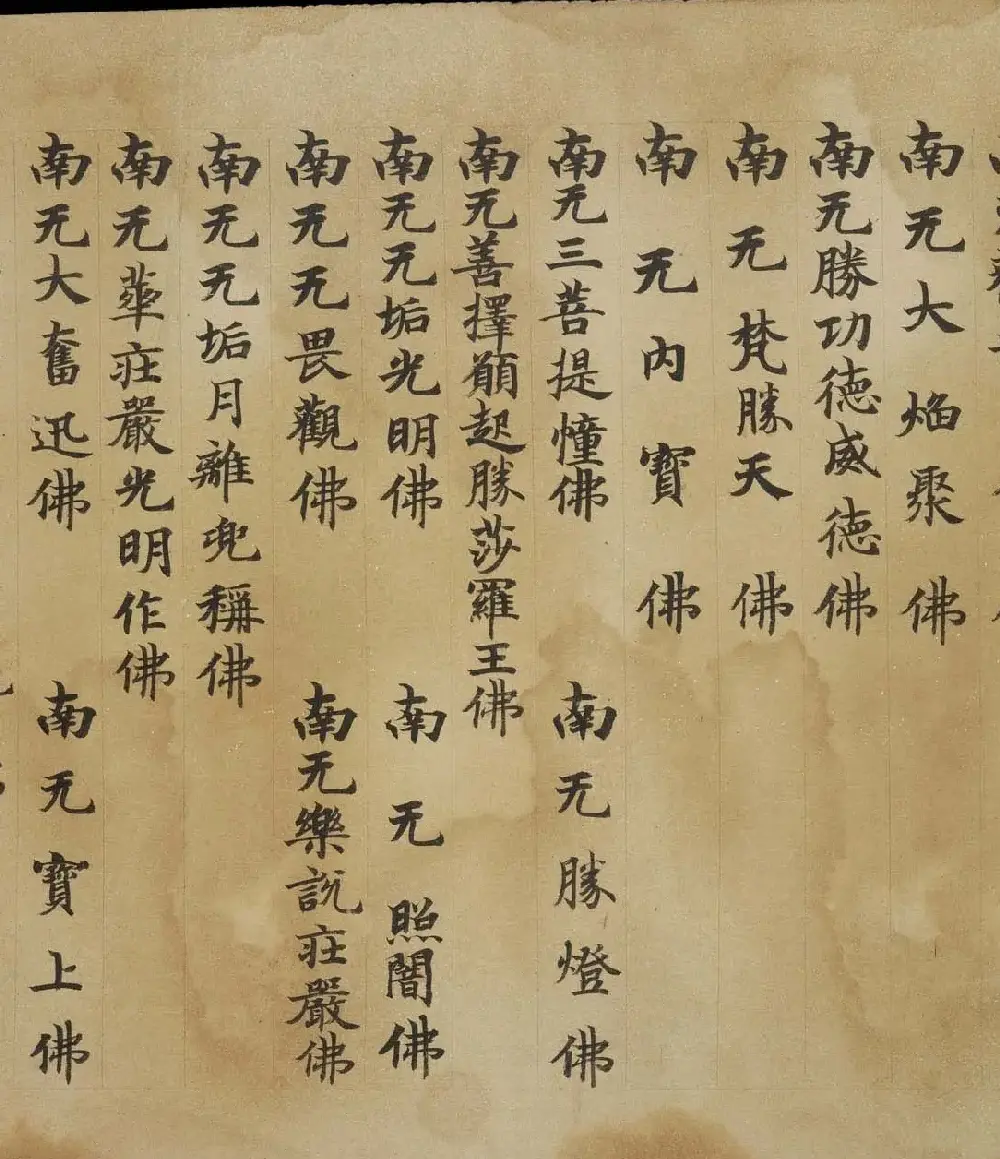 南无大焰聚佛
南无勝功德威德佛
南无梵勝天佛
南无內寶佛
南无三菩提憧佛 南无勝燈佛
南无善擇願起勝莎羅王佛
南无无垢光明佛 南无照闇佛
南无无畏觀佛 南无樂說莊嚴佛
南无无垢月離兜稱佛
南无華莊嚴光明作佛
南无大奮迅佛 南无寶上佛